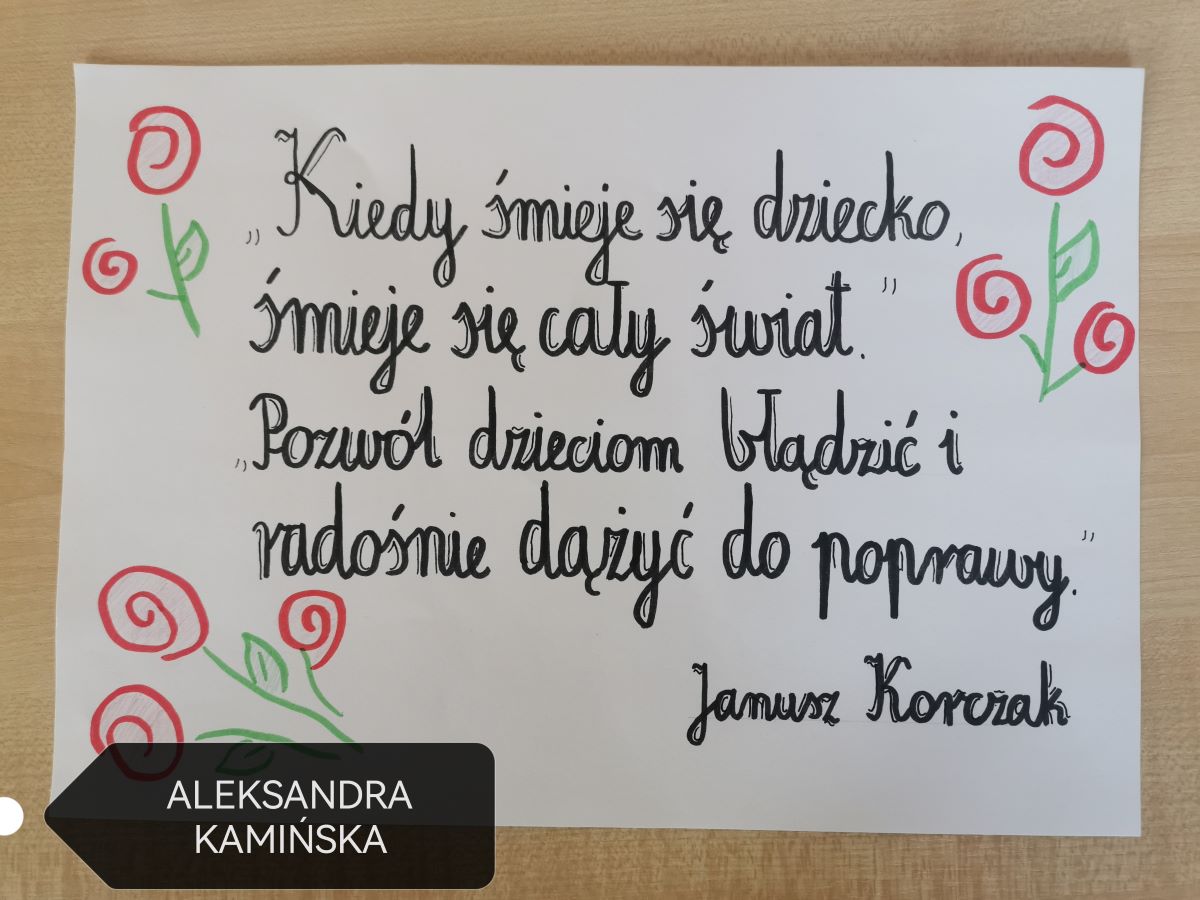 „Kiedy śmieje się dziecko,
śmieje się cały świat.”
„Pozwól dzieciom błądzić i
radośnie dążyć do poprawy.”
Janusz Korczak
ALEKSANDRA
KAMIŃSKA